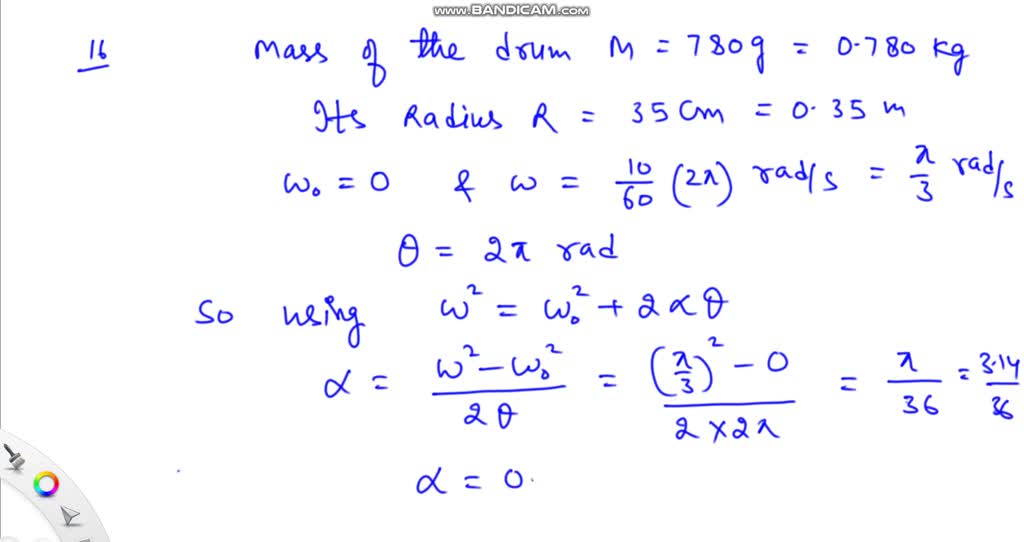 www.BANDICAM.com
16 Mass of the drum M = 780g = 0.780 kg
Its Radius R = 35 Cm = 0.35 m
ω₀ = 0 & ω = 10/60 (2π) rad/s = π/3 rad/s
θ = 2π rad
So using ω² = ω₀² + 2αθ
α = (ω² - ω₀²)/(2θ) = ((π/3)² - 0)/(2×2π) = π/36 = 3.14/36
α = 0.